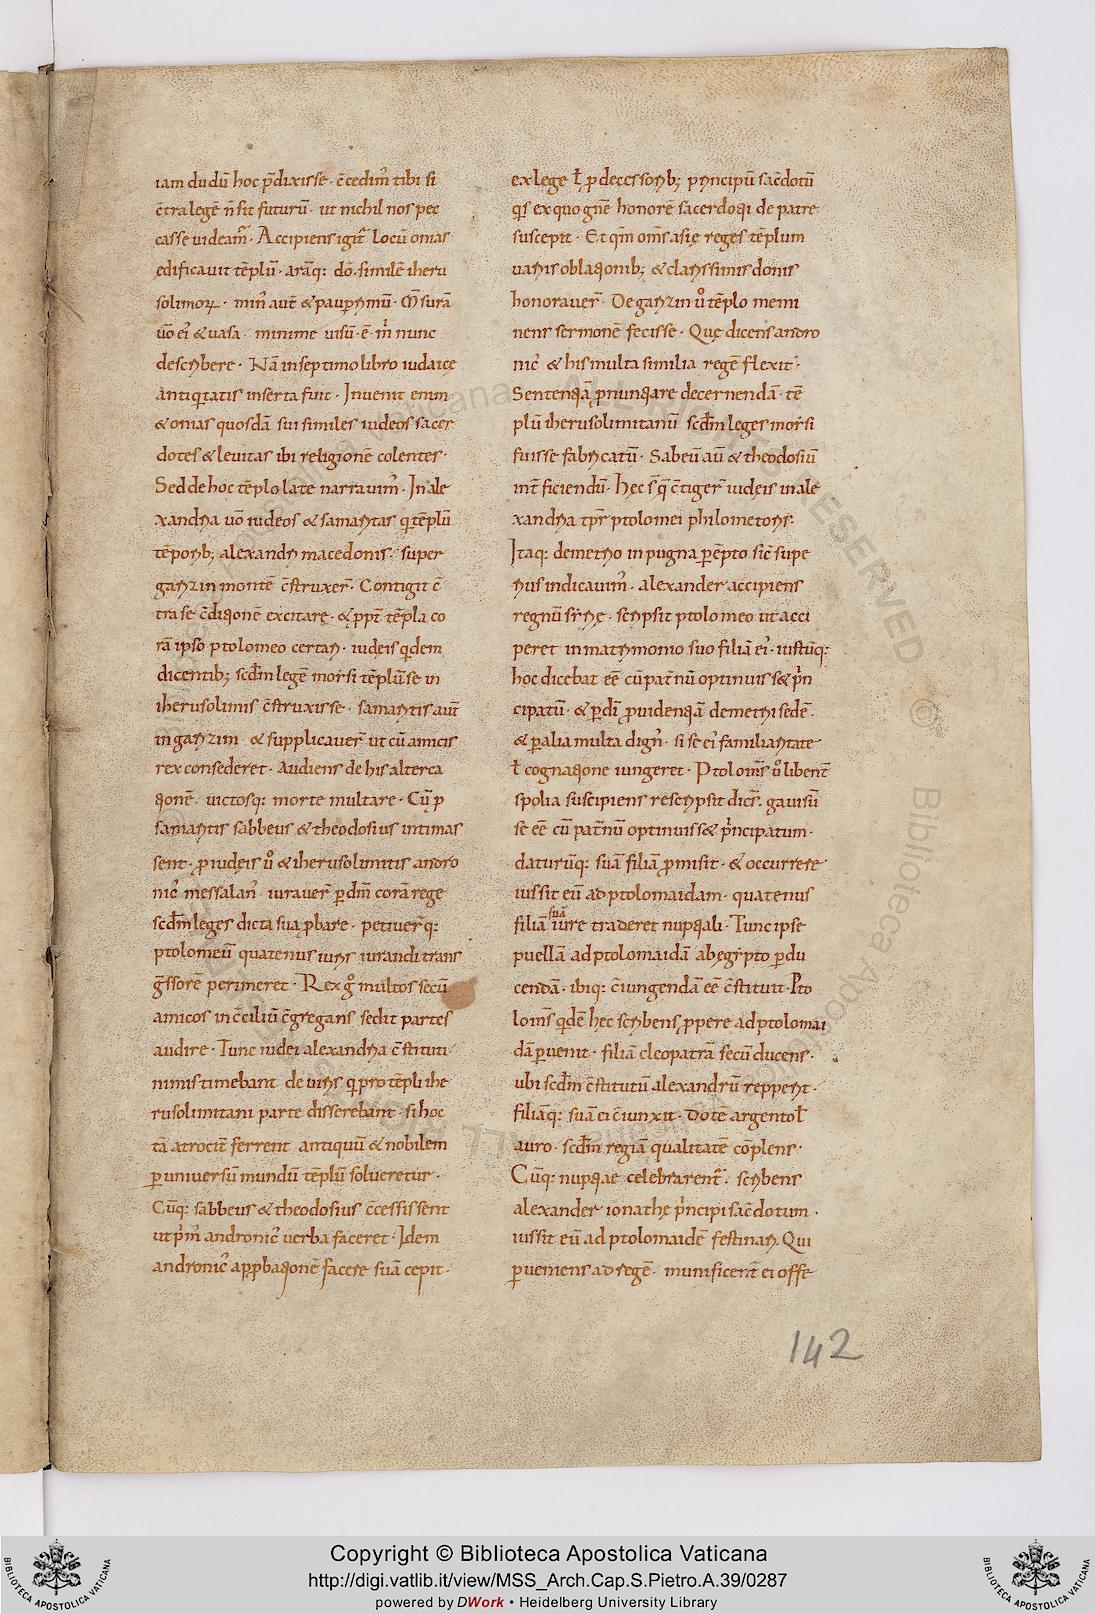 iam dudū hoc p̄dixisse · c̄cedim᷒ tibi si
c̄tra legē n̄ sit futurū · ut nichil nos pec
casse uideam᷒ · Accipiens igit᷒ locū onias
edificauit tēplū · arāq: dō · similē iheru
solimoꝝ · min᷒ aūt & paup̲rimū · M̄surā
ūo ei᷒ & uasa · minime uisū · ē · m̄ nunc
describere · Nā in septimo libro iudaicę
antiq̇tatis inserta fuit · Inuenit enim
& onias quosdā sui similes iudeos sacer
dotes & leuitas ibi religionē colentes ·
Sed de hoc tēplo late narrauim᷒ · In ale
xandria ūo iudeos & samaritas q̇ tēplū
tēporib; alexandri macedonis · super
garizin montē c̄struxer̄ · Contigit c̄
tra se c̄ditionē excitare · & ꝓpt̄ tēpla co
rā ipso ptolomeo certari · iudeis q̇dem
dicentib; scd̄m legē morsi tēplū se in
iherusolimis c̄struxisse · samaritis aūt
in garizim & supplicauer̄ ut cū amicis
rex consederet · Audiens de his alterca
tionē · uictosq: morte multare · Cūq̄ ꝓ
samaritis sabbeus & theodosius intimas
sent · ꝓ iudeis ū̊ & iherusolimitis andro
nic᷒ messalan᷒ · iurauer̄ p̲ dm̄ corā rege
scd̄m leges dicta sua ꝓbare · petiuer̄q:
ptolomeū quatenus iuris iurandi trans
ḡssorē perimeret · Rex g̊ multos secū
amicos in c̄ciliū c̄gregans sedit partes
audire · Tunc iudei alexandria c̄stituti
nimis timebant de uiris q̇ pro tēpli ihe
rusolimitani parte disserebant · si hoc
tā atrociť ferrent antiquū & nobilem
p̲ uniuersū mundū tēplū solueretur ·
Cūq: sabbeus & theodosius c̄cessissent
ut p̄m᷒ andronic᷒ uerba faceret · Idem
andronic᷒ apꝓbationē facere suā cepit ·
ex lege ł p̲decessorib; principū sac̄dotū
q̇s ex quo gn̄e honorē sacerdotii de patre
suscepit · Et qm̄ om̄s asię reges tēplum
uariis oblationib; & clarissimis donis
honorauer̄ · De garizin ū̊ tēplo memi
nens sermonē fecisse · Quę dicens andro
nic᷒ & his multa similia regē flexit ·
Sententiā ꝓnuntiare decernendā · tē
plū iherusolimitanū scd̄m leges morsi
fuisse fabricatū · Sabeū aū & theodosiū
int̄ficiendū · Hęc s̄ q̄ c̄tiger̄ iudeis in ale
xandria tp̄r ptolomei philometoris ·
Itaq: demetrio in pugna p̲ēpto sic̄ supe
rius indicauim᷒ · alexander accipiens
regnū sirię · scripsit ptolomeo ut acci
peret in matrimonio suo filiā ei᷒ · iustūq:
hoc dicebat eē cū pat̄nū optinuis s& p̄n
cipatū · & p̲ di ꝓuidentiā demetrii sedē ·
& p̲ alia multa dign᷒ · si se ei᷒ familiaritate
ł cognatione iungeret · Ptolom̄s ū̊ libent̄
spolia suscipiens rescripsit dic̄s · gauisū
se eē cū pat̄nū optinuiss& p̄ncipatum ·
daturūq: suā filiā ꝓmisit · & occurrere
iussit eū ad ptolomaidam · quatenus
suā
filiā iure traderet nuptiali · Tunc ipse
puellā ad ptolomaidā ab egipto p̲du
cendā · ibiq: c̄iungendā eē c̄stituit · Pto
lom̄s q̇dē hec scribens ꝓpere ad ptolomai
dā p̲uenit · filiā cleopatrā secū ducens ·
ubi scd̄m c̄stitutū alexandrū repperit ·
filiāq: suā ei c̄iunxit · Dotē argento ł
auro · scd̄m regiā qualitatē cōplens ·
Cūq: nuptiae celebrarent᷒ · scribens
alexander ionathę p̄ncipi sac̄dotum ·
iussit eū ad ptolomaidē festinari · Qui
p̲ueniens ad regē · munificent̄ ei offe
142
Copyright © Biblioteca Apostolica Vaticana
http://digi.vatlib.it/view/MSS_Arch.Cap.S.Pietro.A.39/0287
powered by DWork • Heidelberg University Library